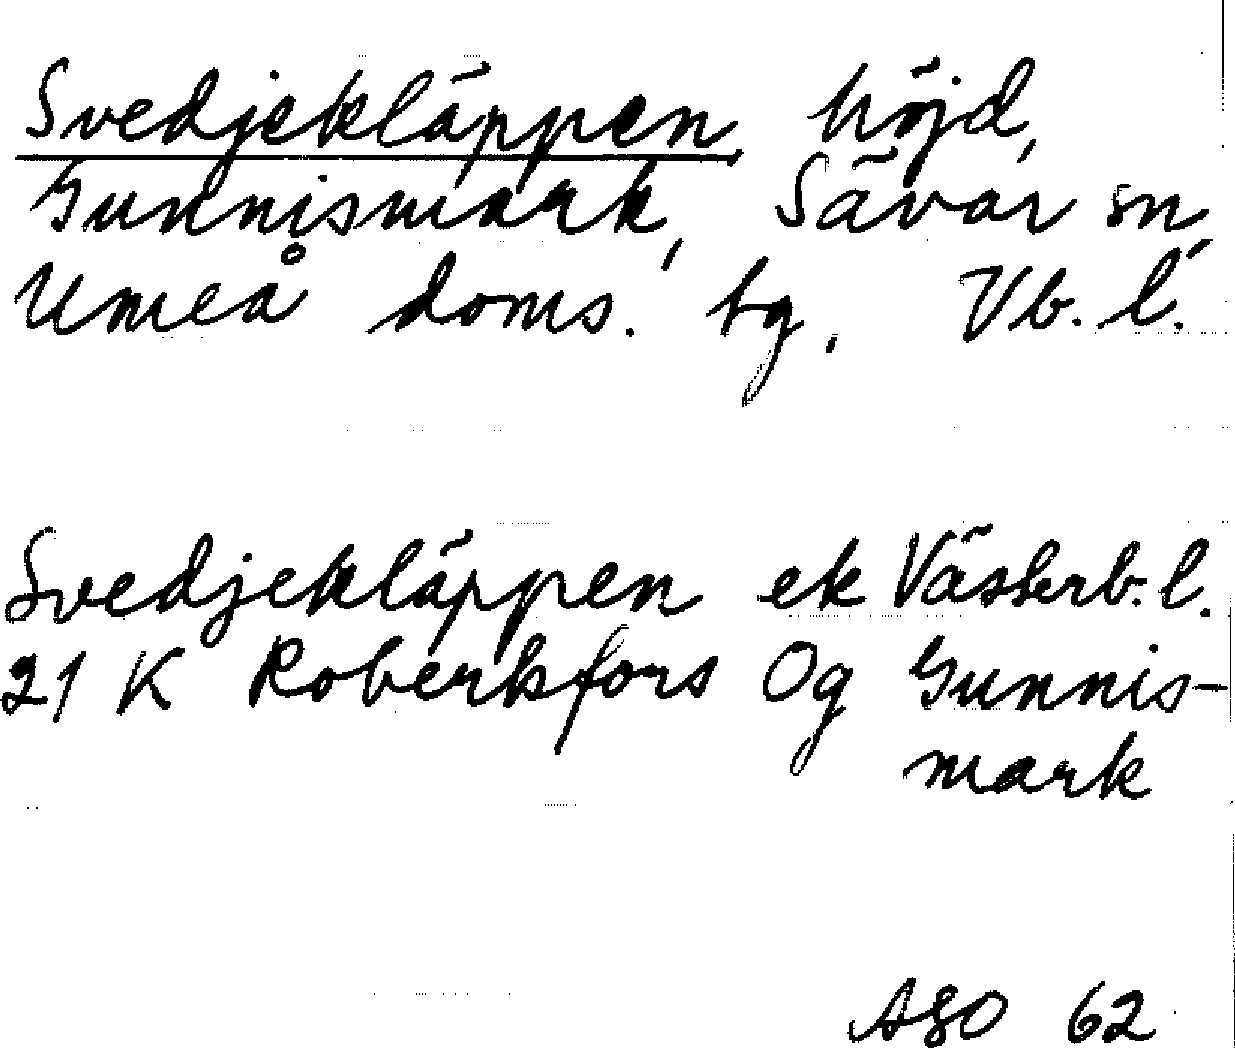 Svedjekläppen, höjd,
Gunnismark, Sävar sn,
Umeå doms. tg, Vb. l.
Svedjekläppen ek Västerb. l.
21 K Robertsfors Og Gunnis-
mark
ASO 62